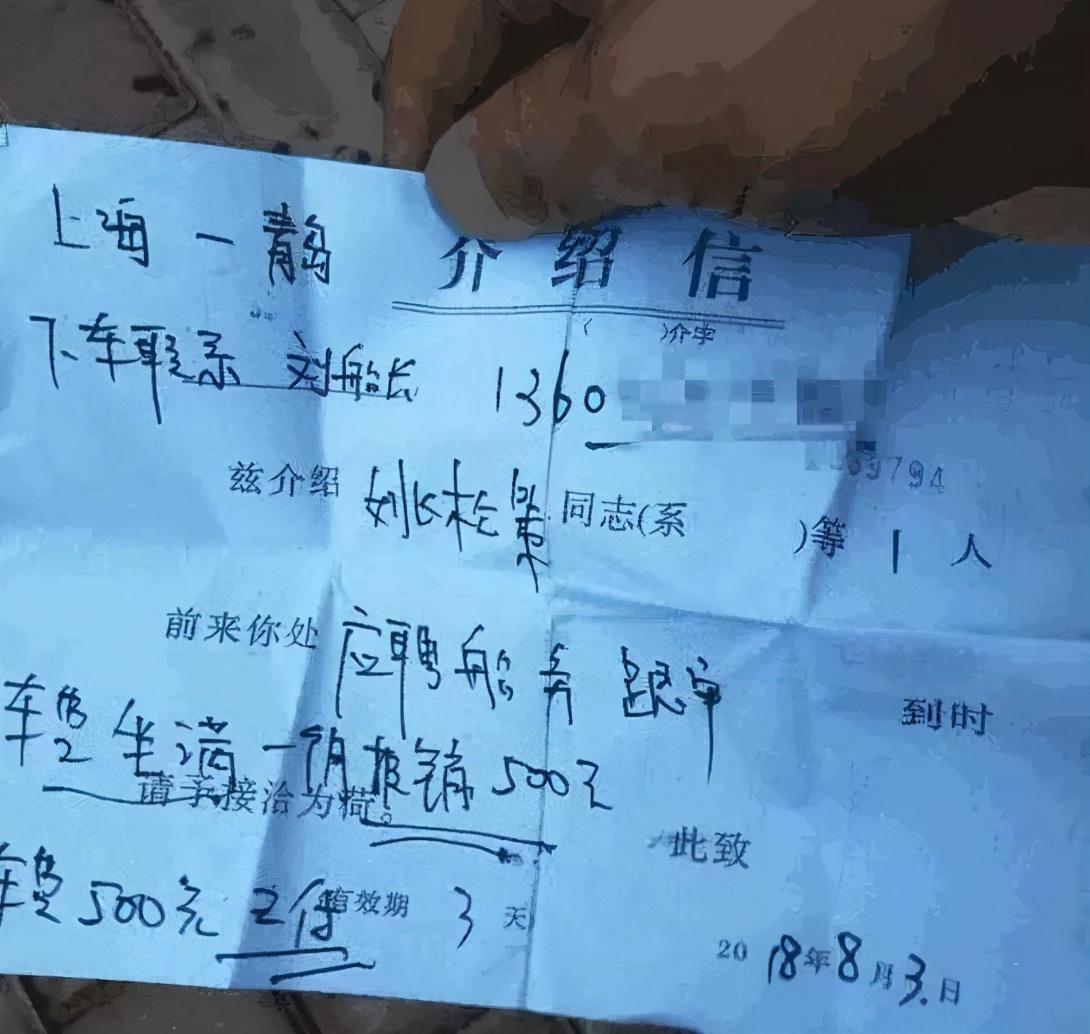 上海－青岛 介绍信
( )介字
下车联系 刘船长 1360
794
兹介绍 姚松 同志(系 )等 1 人
前来你处 应聘船务 跟单 到时
车费坐满一个月报销500元
请予接洽为荷。
此致
车费500元 已付
有效期 3 天
2018年8月3日